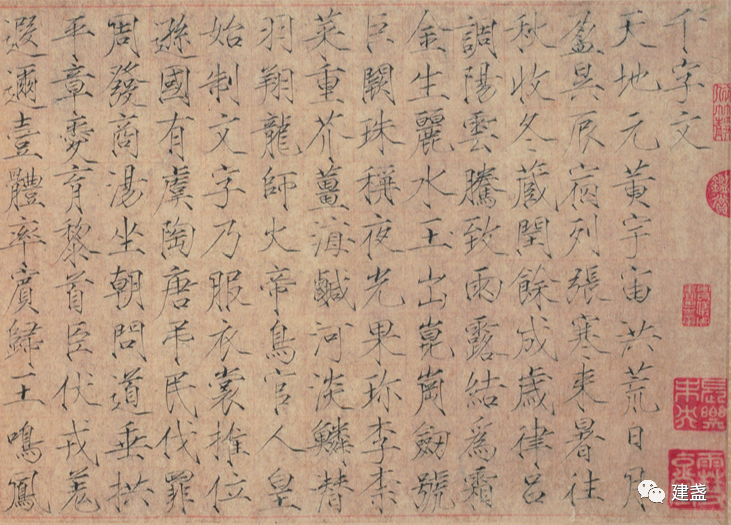 千字文
天地元黃宇宙洪荒日月
盈昃辰宿列張寒來暑往
秋收冬藏閏餘成歲律呂
調陽雲騰致雨露結爲霜
金生麗水玉出崑崗劒號
巨闕珠稱夜光果珍李柰
菜重芥薑海鹹河淡鱗潛
羽翔龍師火帝鳥官人皇
始制文字乃服衣裳推位
遜國有虞陶唐弔民伐罪
周發商湯坐朝問道垂拱
平章愛育黎首臣伏戎羌
遐邇壹體率賓歸王鳴鳳
建盏